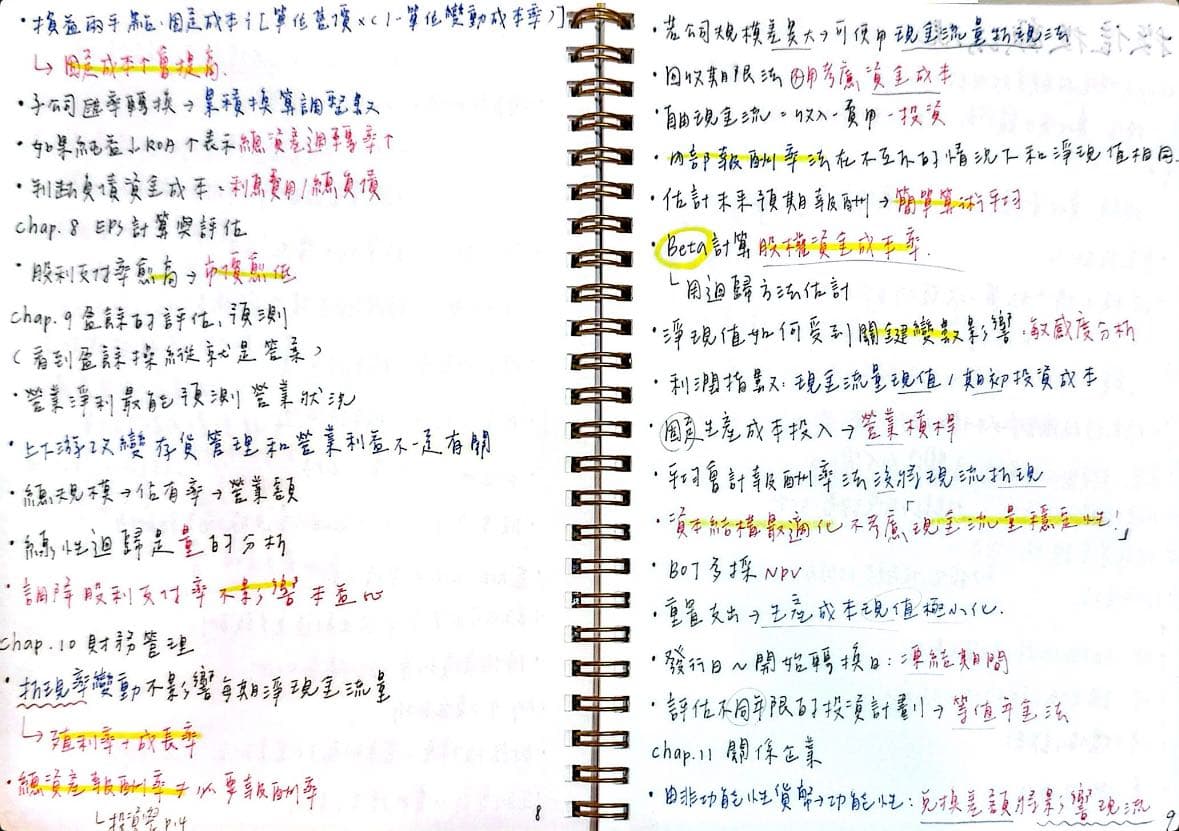 ・損益兩平點:固定成本÷[單位售價×(1-單位變動成本率)]
↳固定成本↑會提高.
・子公司匯率轉換→累積換算調整數
・如果純益↓ROA↑表示總資產週轉率↑
・判斷負債資金成本:利息費用/總負債
chap.8 EPS計算與評估
・股利支付率愈高→市價愈低
chap.9 盈餘的評估、預測
(看到盈餘操縱就是答案)
・營業淨利最能預測營業狀況
・上下游改變存貨管理和營業利益不一定有關
・總規模→佔有率→營業額
・線性迴歸是量的分析
・調降股利支付率不影響本益比
chap.10 財務管理
・折現率變動不影響每期淨現金流量
↳殖利率+成長率
・總資產報酬率≠必要報酬率
↳投資學p.14
8
・若公司規模差異大→可使用現金流量折現法
・回收期限法不用考慮資金成本
・自由現金流=收入-費用-投資
・內部報酬率法在不互斥的情況下和淨現值相同
・估計未來預期報酬→簡單算術平均
・Beta計算股權資金成本率.
└用迴歸方法估計
・淨現值如何受到關鍵變數影響:敏感度分析
・利潤指數:現金流量現值/期初投資成本
・固定生產成本投入→營業槓桿
・平均會計報酬率法沒將現流折現
・資本結構最適化 不考慮「現金流量穩定性」
・BOT多採NPV
・重置支出→生產成本現值極小化.
・發行日~開始轉換日:凍結期間
・評估不同年限的投資計劃→等值年金法
chap.11 關係企業
・由非功能性貨幣→功能性:兌換差額將影響現流
9